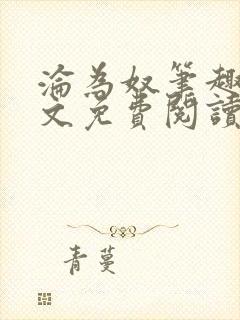 淪為奴筆趣
文免費閱讀
青蔓